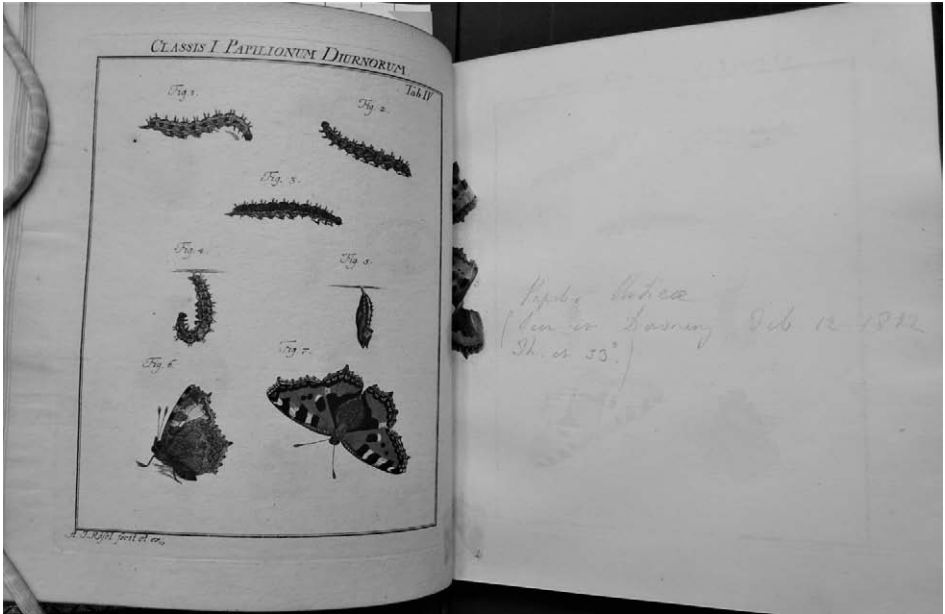 CLASSIS I PAPILIONUM DIURNORUM
Tab IV
Fig. 1.
Fig. 2.
Fig. 3.
Fig. 4.
Fig. 5.
Fig. 6.
Fig. 7.
A. J. Rösel fecit et exc.
Papilio Urticæ
in Feb 12
at 33°.)